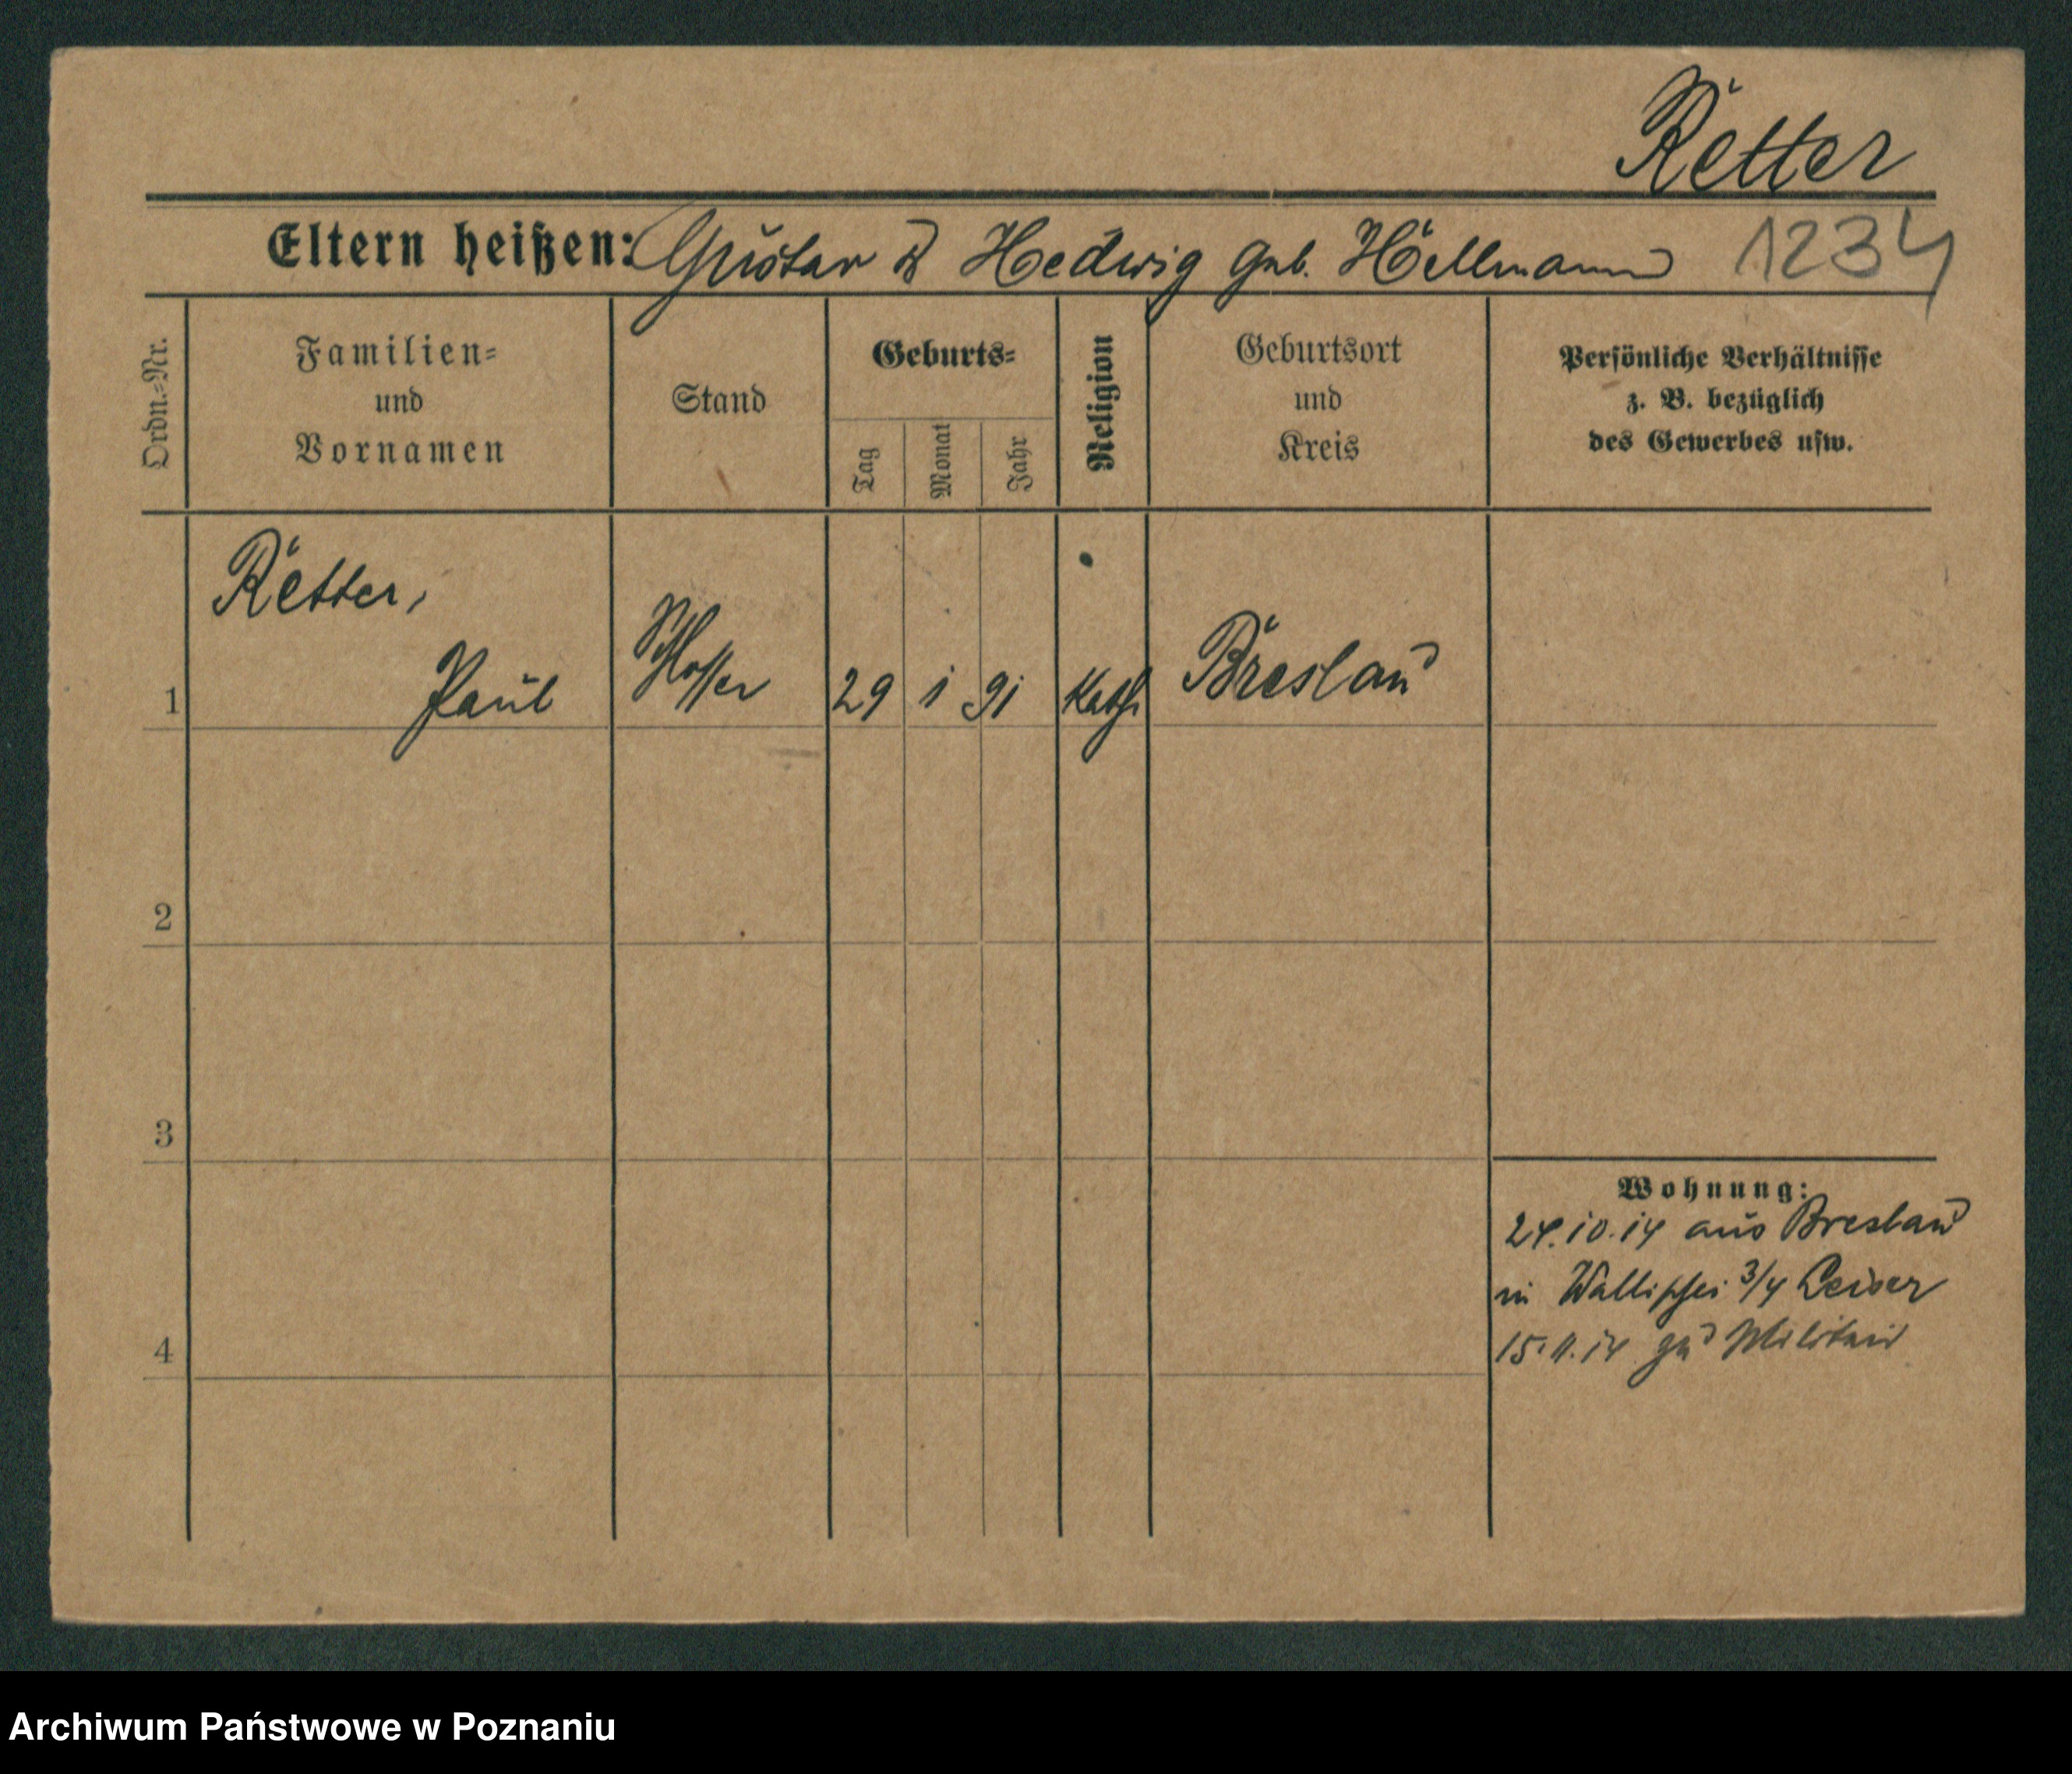 Retter
Eltern heißen: Gustav & Hedwig geb. Hellmann 1234
Ordn.=Nr.
Familien=
und
Vornamen
Stand
Geburts=
Tag
Monat
Jahr
Religion
Geburtsort
und
Kreis
Persönliche Verhältnisse
z. B. bezüglich
des Gewerbes usw.
Retter,
1 Paul Schlosser 29 1 91 Kath Breslau
2
3
4
Wohnung:
24.10.14 aus Breslau
in Wallischei 3/4 Leiser
15.11.14 zu Militair
Archiwum Państwowe w Poznaniu